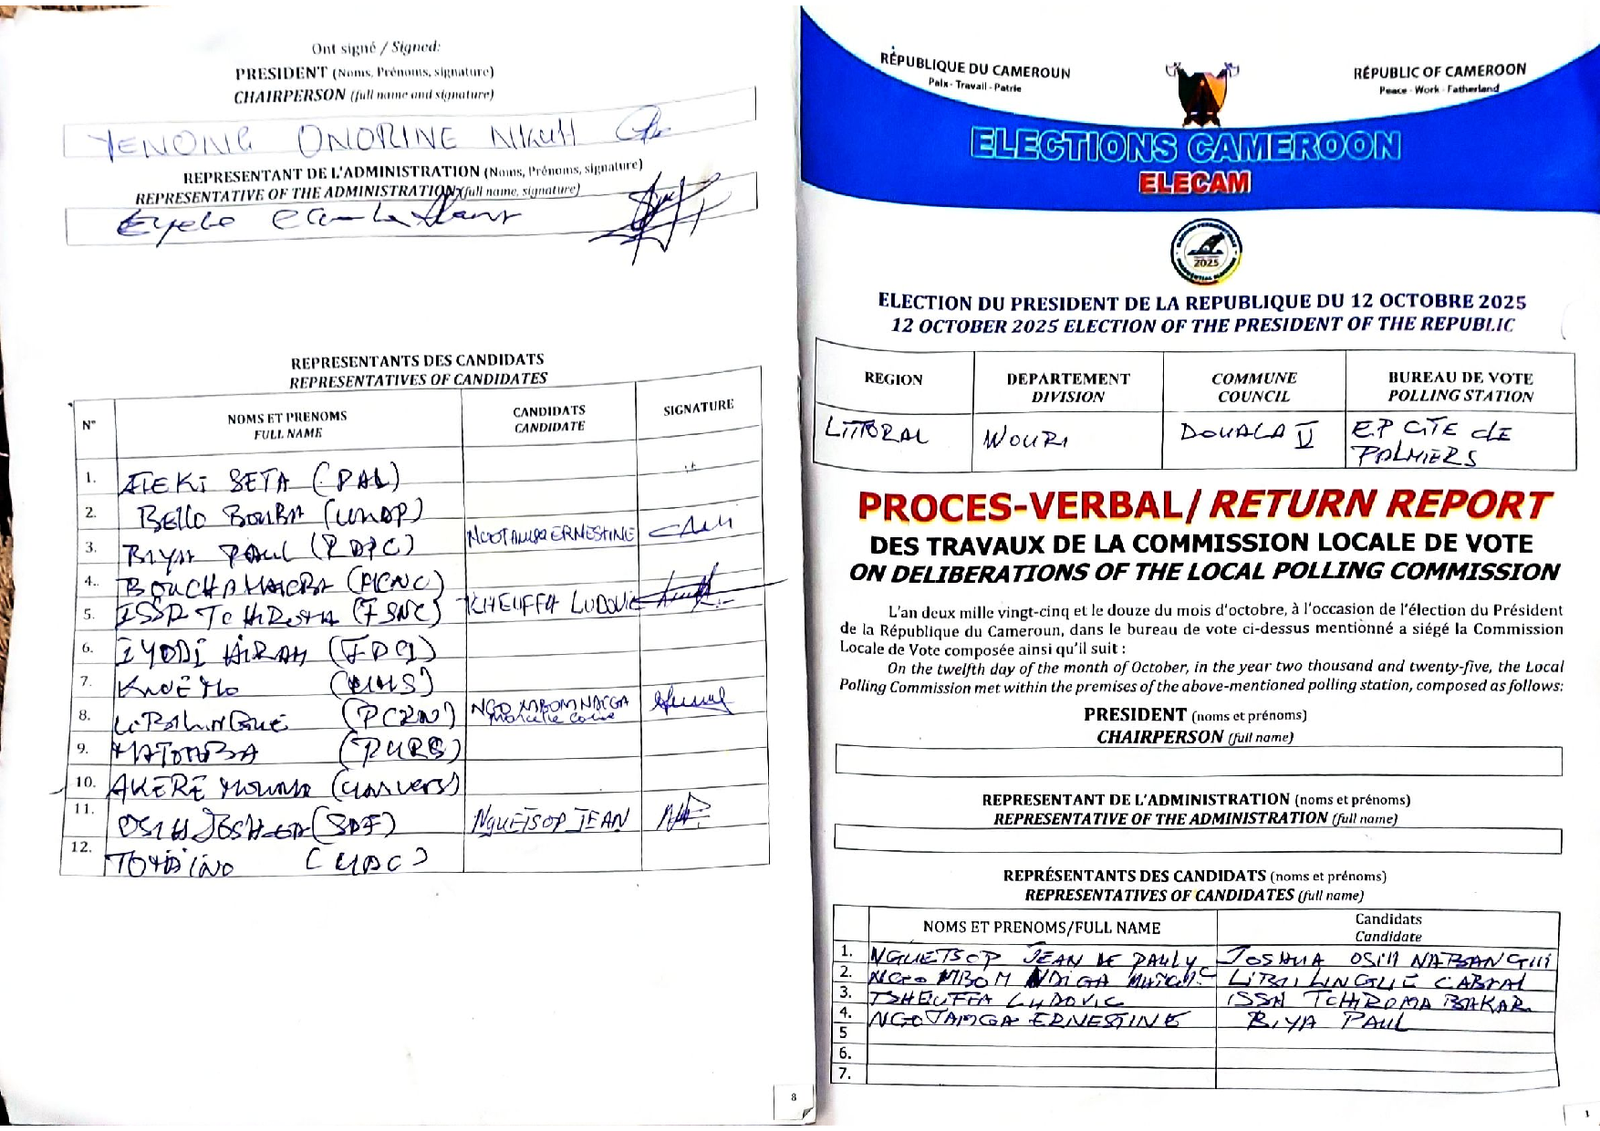 Ont signé / Signed:
PRESIDENT (Noms, Prénoms, signature)
CHAIRPERSON (full name and signature)
YENONG ONORINE NKUH
REPRESENTANT DE L'ADMINISTRATION (Noms, Prénoms, signature)
REPRESENTATIVE OF THE ADMINISTRATION (full name, signature)
REPRESENTANTS DES CANDIDATS
REPRESENTATIVES OF CANDIDATES
N° NOMS ET PRENOMS FULL NAME CANDIDATS CANDIDATE SIGNATURE
1. ATEKI SETA (PAL)
2. BELLO BOUBA (UNDP)
3. BIYA PAUL (RDPC) NGOTAMGA ERNESTINE
4. BOUCHAMAOBA (MCNC)
5. ISSA TCHIROMA (FSNC) KHEUFFA LUDOVIC
6. IYODI HIRAM (FDC)
7. KWEMO (UMS)
8. LIBALINGUE (PCRN) NGO MBOM NDIGA
9. MATOMBA (PURS)
10. AKERE MOUNA (Univers)
11. OSIH JOSHUA (SDF) NGUETSOP JEAN
12. TOMAINO (UDC)
8
RÉPUBLIQUE DU CAMEROUN
Paix - Travail - Patrie
RÉPUBLIC OF CAMEROON
Peace - Work - Fatherland
ELECTIONS CAMEROON
ELECAM
2025
ELECTION DU PRESIDENT DE LA REPUBLIQUE DU 12 OCTOBRE 2025
12 OCTOBER 2025 ELECTION OF THE PRESIDENT OF THE REPUBLIC
REGION DEPARTEMENT DIVISION COMMUNE COUNCIL BUREAU DE VOTE POLLING STATION
LITTORAL WOURI DOUALA V E.P CITE de PALMIERS
PROCES-VERBAL/ RETURN REPORT
DES TRAVAUX DE LA COMMISSION LOCALE DE VOTE
ON DELIBERATIONS OF THE LOCAL POLLING COMMISSION
L'an deux mille vingt-cinq et le douze du mois d'octobre, à l'occasion de l'élection du Président
de la République du Cameroun, dans le bureau de vote ci-dessus mentionné a siégé la Commission
Locale de Vote composée ainsi qu'il suit :
On the twelfth day of the month of October, in the year two thousand and twenty-five, the Local
Polling Commission met within the premises of the above-mentioned polling station, composed as follows:
PRESIDENT (noms et prénoms)
CHAIRPERSON (full name)
REPRESENTANT DE L'ADMINISTRATION (noms et prénoms)
REPRESENTATIVE OF THE ADMINISTRATION (full name)
REPRÉSENTANTS DES CANDIDATS (noms et prénoms)
REPRESENTATIVES OF CANDIDATES (full name)
NOMS ET PRENOMS/FULL NAME Candidats Candidate
1. NGUETSOP JEAN DE PAULY JOSHUA OSIH NABANGIII
2. NGO MBOM NDIGA LIBII LINGUE CABRAL
3. TSHEUFFA LUDOVIC ISSA TCHIROMA BAKAR
4. NGOTAMGA ERNESTINE BIYA PAUL
5
6.
7.
1